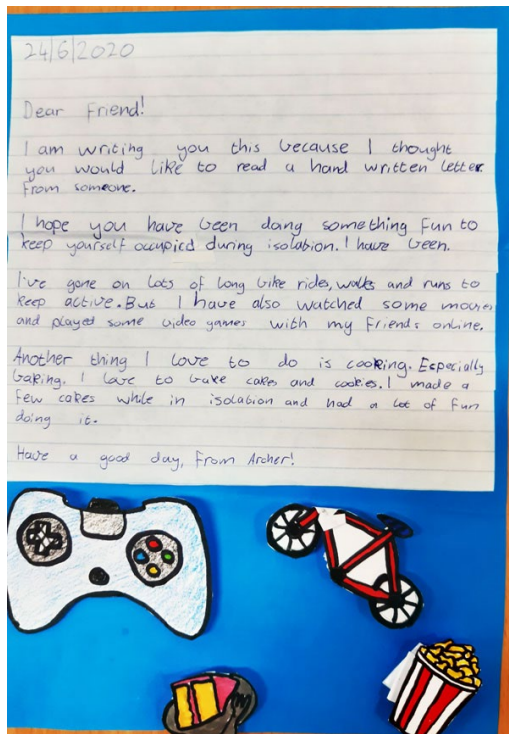 24/6/2020
Dear Friend!
I am writing you this because I thought
you would like to read a hand written letter
from someone.
I hope you have been doing something fun to
keep yourself occupied during isolation. I have been.
I've gone on lots of long bike rides, walks and runs to
keep active. But I have also watched some movies
and played some video games with my friends online.
Another thing I love to do is cooking. Especially
baking. I love to bake cakes and cookies. I made a
few cakes while in isolation and had a lot of fun
doing it.
Have a good day, From Archer!